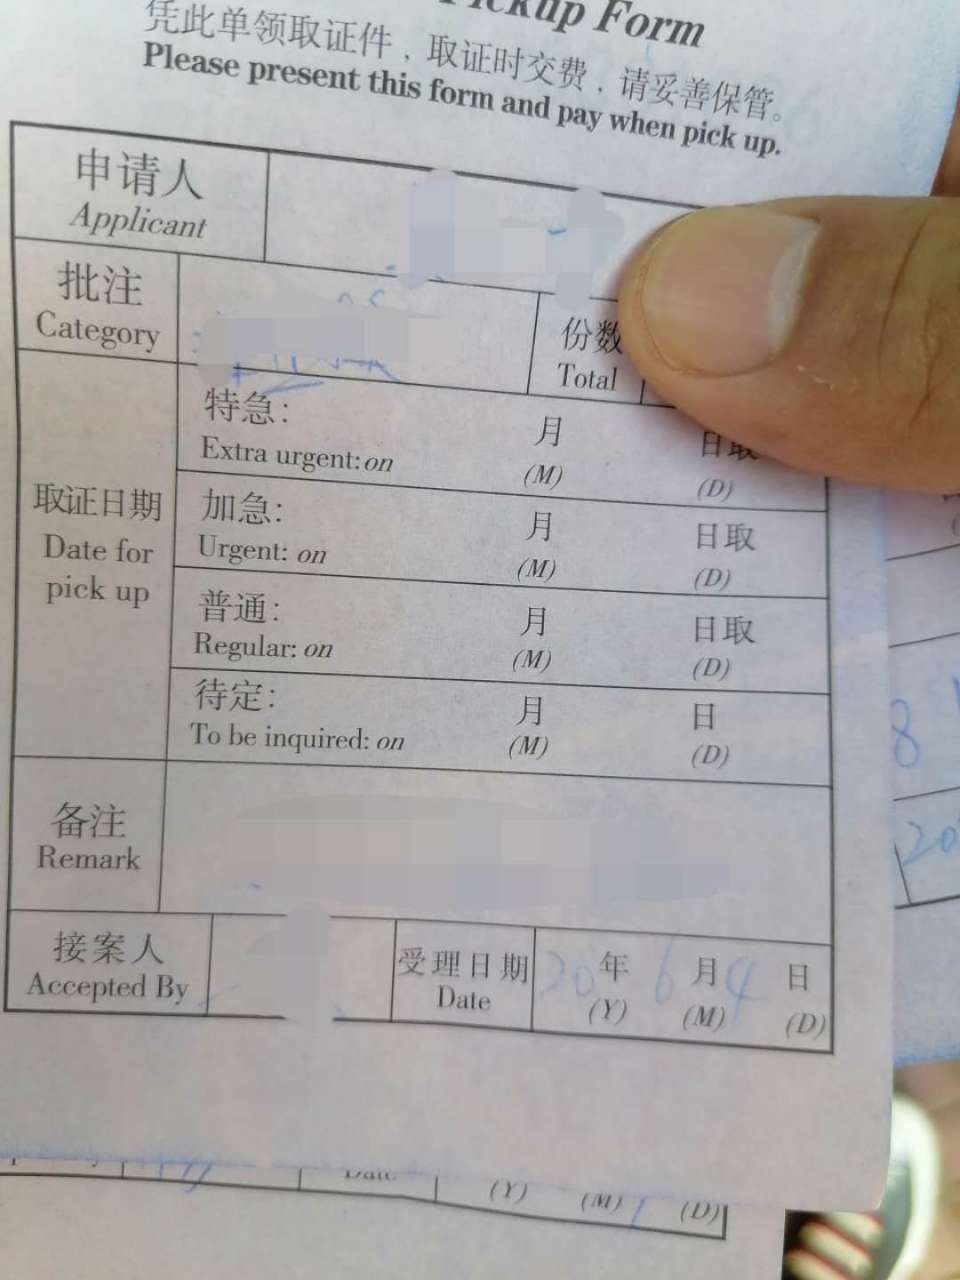 Pickup Form
凭此单领取证件，取证时交费，请妥善保管。
Please present this form and pay when pick up.
申请人
Applicant
批注
Category
份数
Total
取证日期
Date for
pick up
特急: 月 日取
Extra urgent: on (M) (D)
加急: 月 日取
Urgent: on (M) (D)
普通: 月 日取
Regular: on (M) (D)
待定: 月 日
To be inquired: on (M) (D)
备注
Remark
接案人
Accepted By
受理日期
Date
20 年 6 月 4 日
(Y) (M) (D)
8
20
Date
(Y) (M) (D)